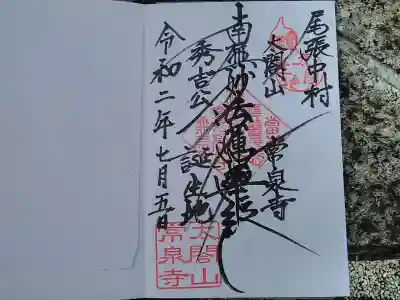 尾張中村
太閤山
常泉寺
南無妙法蓮華経
秀吉公
誕生地
令和二年七月五日
太閤山
常泉寺